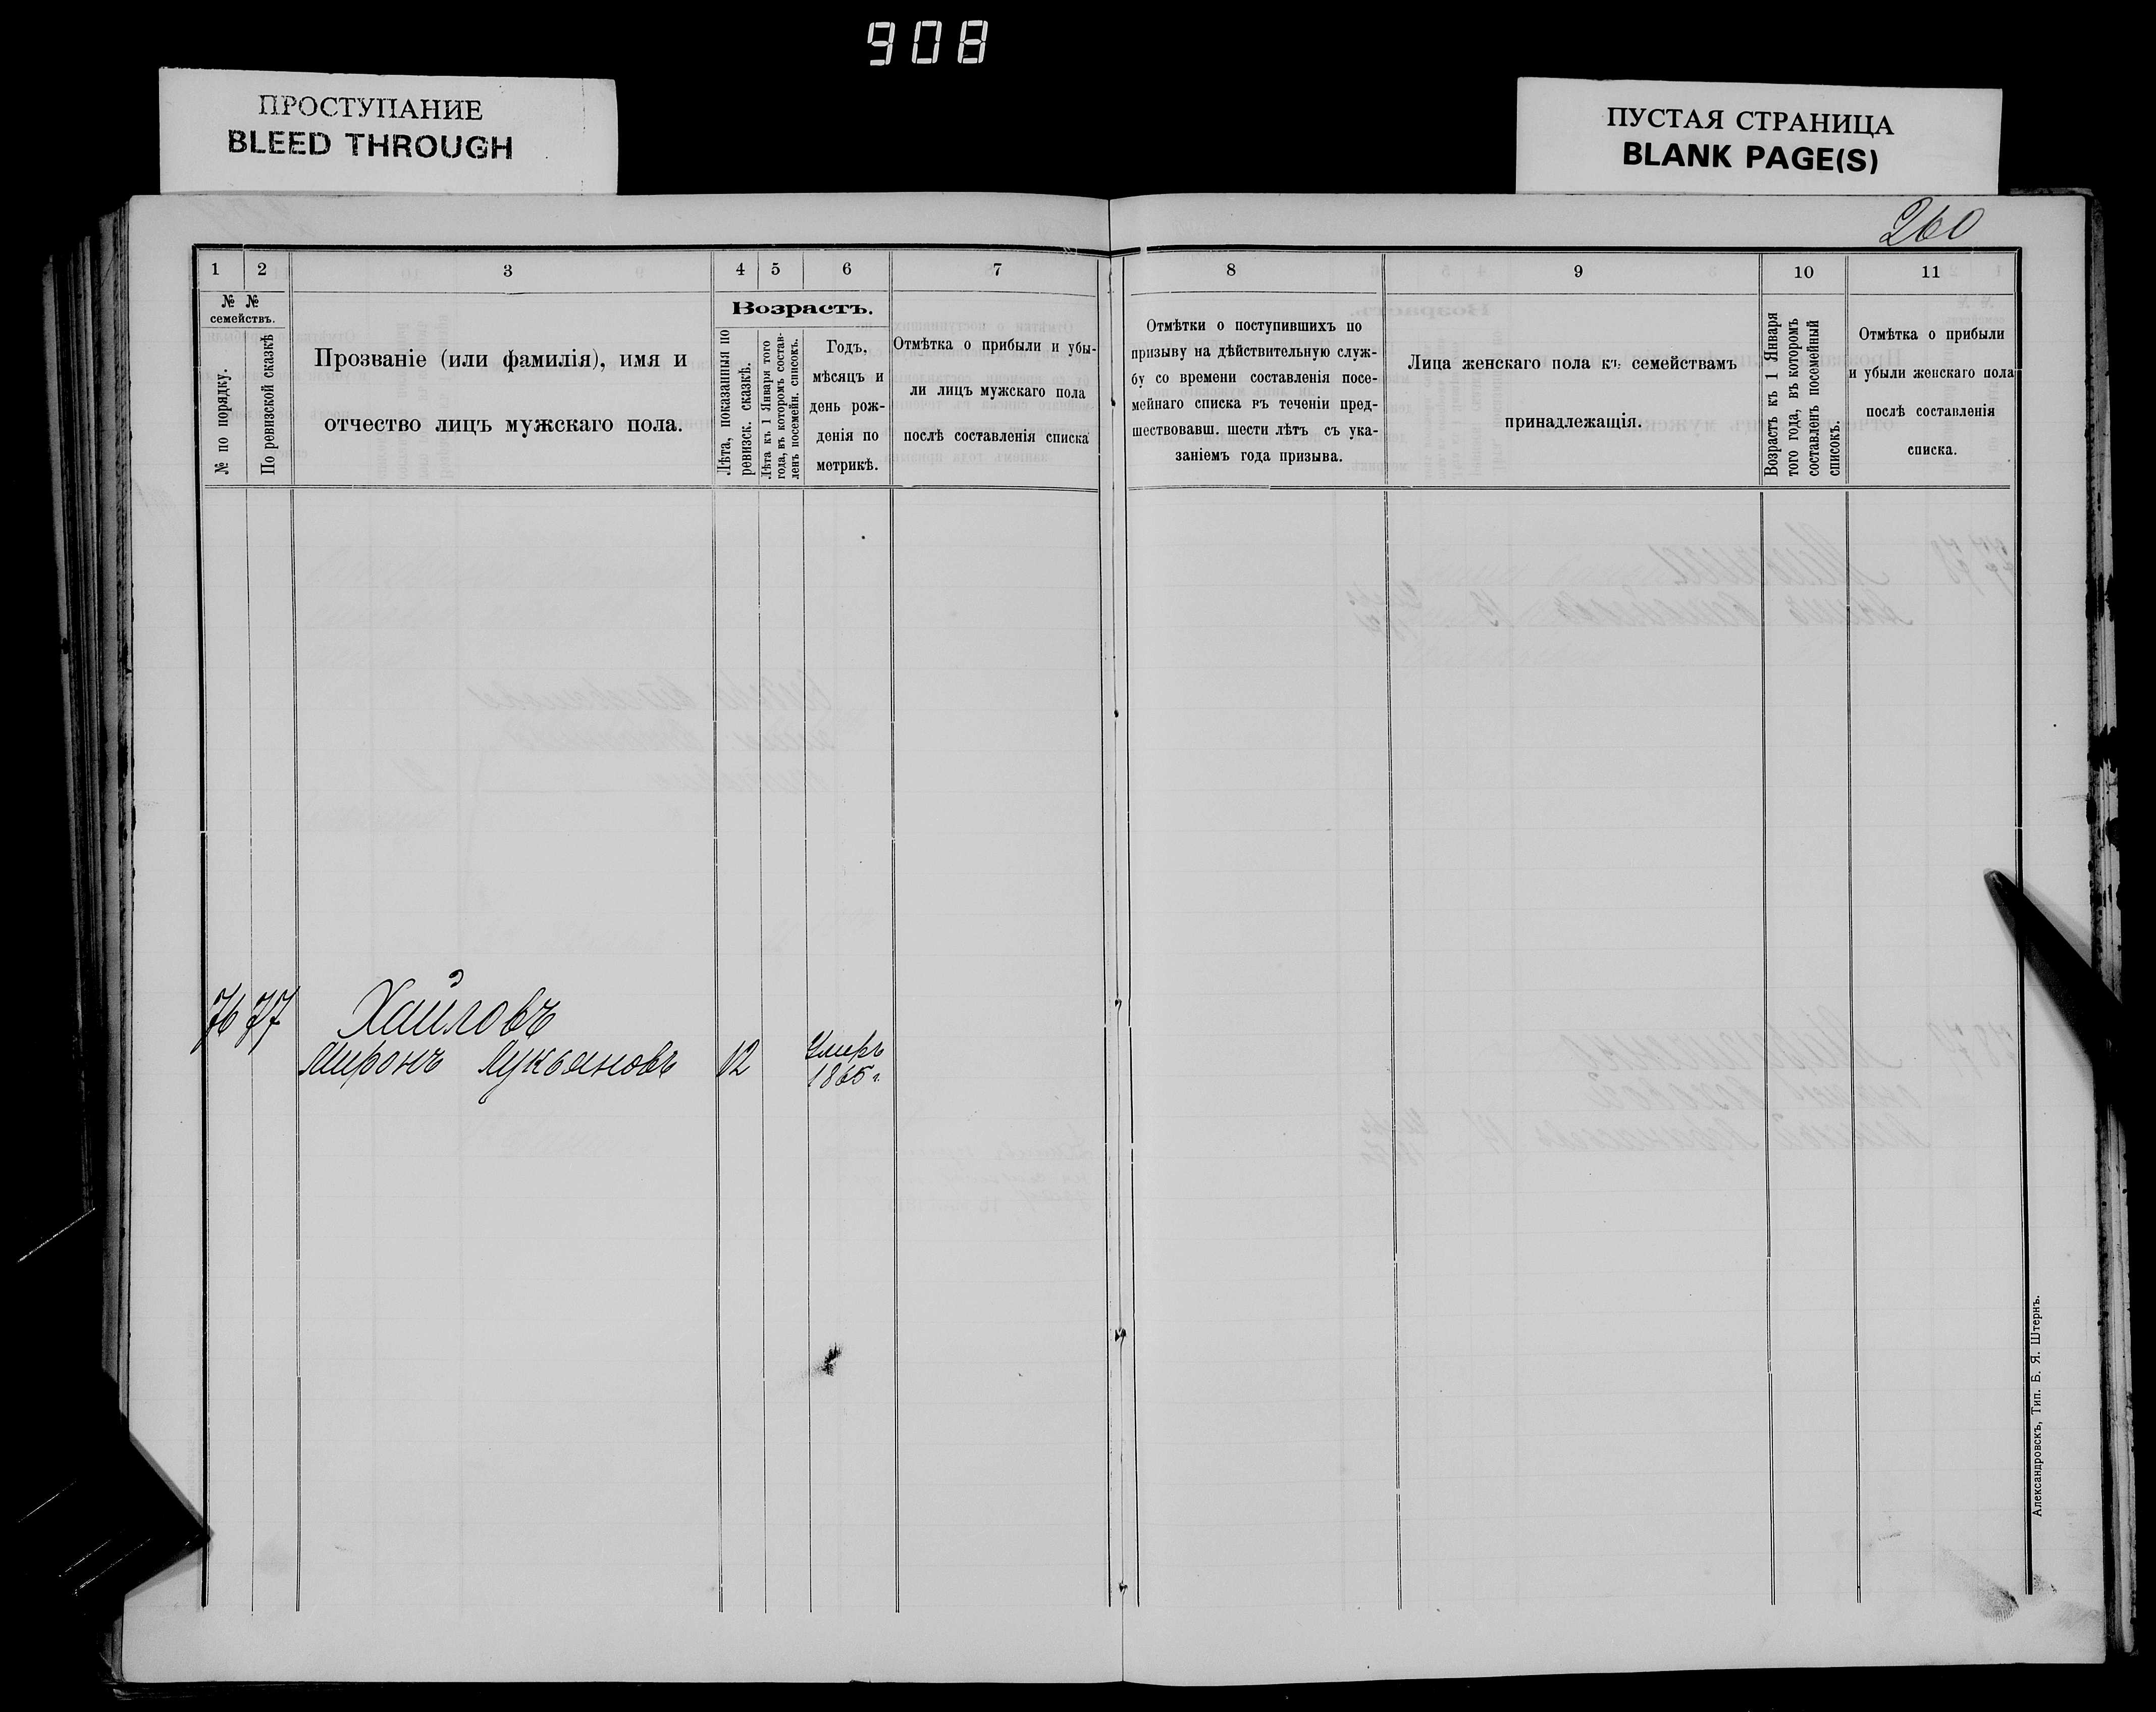 908
ПРОСТУПАНИЕ
BLEED THROUGH
ПУСТАЯ СТРАНИЦА
BLANK PAGE(S)
260
1 2 3 4 5 6 7
№ №
семействъ.
№ по порядку.
По ревизской сказкѣ
Прозваніе (или фамилія), имя и
отчество лицъ мужскаго пола.
Возрастъ.
Лѣта, показанныя по
ревизск. сказкѣ.
Лѣта къ 1 Января того
года, въ которомъ состав-
ленъ посемейн. списокъ.
Годъ,
мѣсяцъ и
день рож-
денія по
метрикѣ.
Отмѣтка о прибыли и убы-
ли лицъ мужскаго пола
послѣ составленія списка
8 9 10 11
Отмѣтки о поступившихъ по
призыву на дѣйствительную служ-
бу со времени составленія посе-
мейнаго списка въ теченіи пред-
шествовавш. шести лѣтъ съ ука-
заніемъ года призыва.
Лица женскаго пола къ семействамъ
принадлежащія.
Возрастъ къ 1 Января
того года, въ которомъ
составленъ посемейный
списокъ.
Отмѣтка о прибыли
и убыли женскаго пола
послѣ составленія
списка.
76 77 Хайловъ
Миронъ Лукьяновъ 12 Умеръ
1865 г.
Александровскъ, Тип. Б. Я. Штернъ.